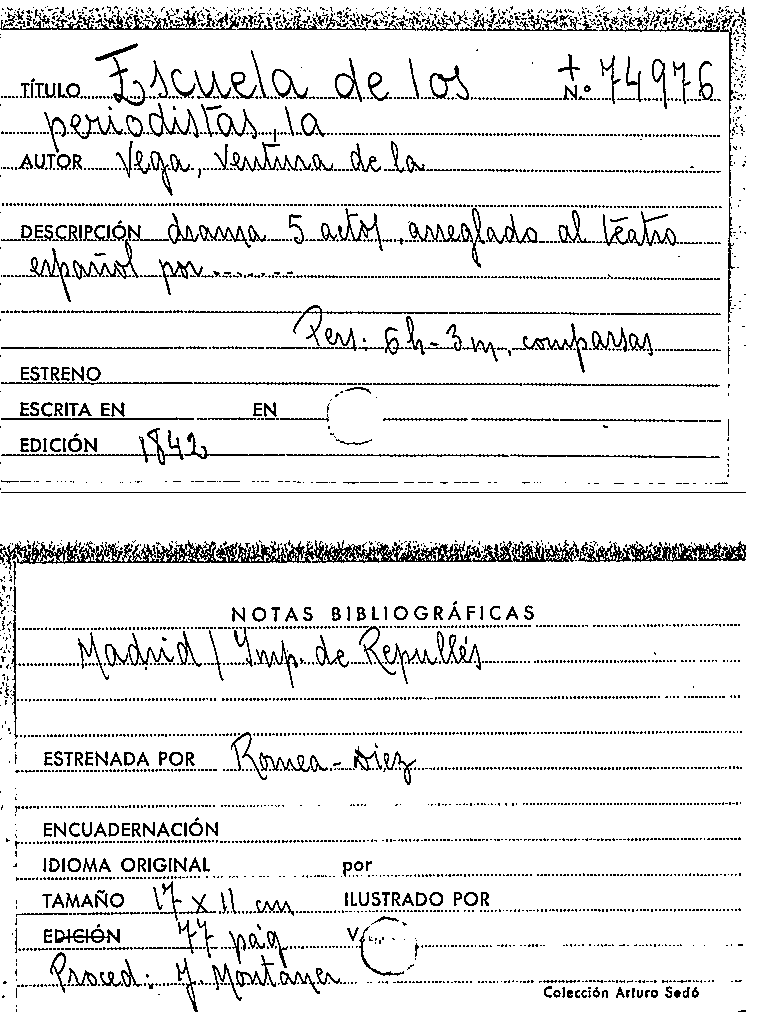 TÍTULO Escuela de los + N.º 74976
periodistas, la
AUTOR Vega, Ventura de la
DESCRIPCIÓN drama 5 actos, arreglado al teatro
español por .......
Pers. 6h - 3m, comparsas
ESTRENO
ESCRITA EN EN
EDICIÓN 1842
NOTAS BIBLIOGRÁFICAS
Madrid / Imp. de Repullés
ESTRENADA POR Romea - Diez
ENCUADERNACIÓN
IDIOMA ORIGINAL por
TAMAÑO 17 x 11 cm ILUSTRADO POR
EDICIÓN 77 pág V.
Proced: J. Montaner
Colección Arturo Sedó